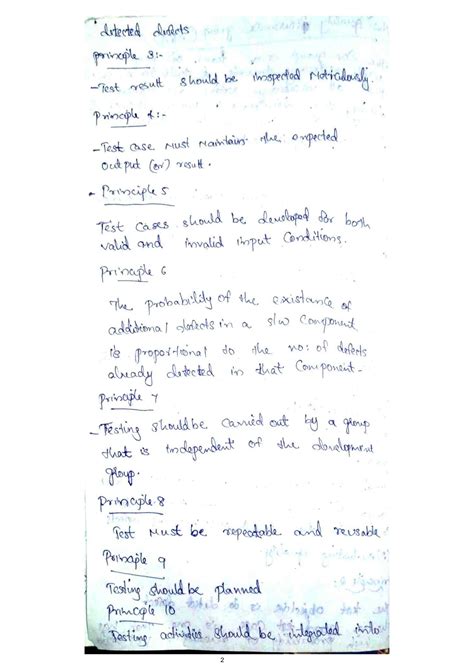 detected defects
principle 3:-
-Test result should be inspected Meticulously.
Principle 4:-
-Test case Must Maintain the expected
output (or) result.
- Principle 5
Test cases should be developed for both
valid and invalid input Conditions.
Principle 6
The probability of the existance of
additional defects in a s/w Component
is proportional to the no: of defects
already detected in that Component.
principle 7
- Testing should be Carried out by a group
that is independent of the development
group.
Principle 8
Test Must be repeatable and reusable
Principle 9
Testing should be planned
Principle 10
Testing activities should be integrated into
2